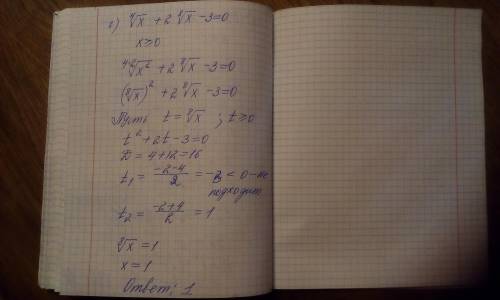 г) ⁴√x + 2 ⁸√x - 3 = 0
x ≥ 0
⁴·²√x² + 2 ⁸√x - 3 = 0
(⁸√x)² + 2 ⁸√x - 3 = 0
Пусть t = ⁸√x ; t ≥ 0
t² + 2t - 3 = 0
D = 4 + 12 = 16
t₁ = (-2-4)/2 = -3 < 0 - не
подходит
t₂ = (-2+4)/2 = 1
⁸√x = 1
x = 1
Ответ: 1